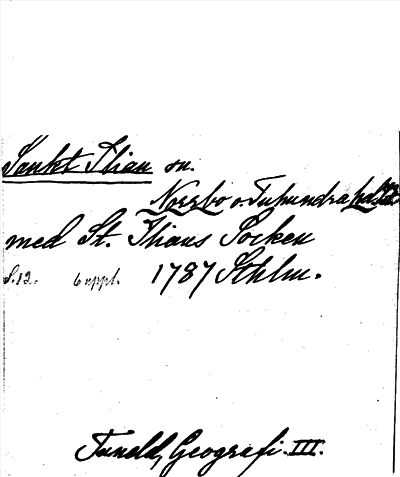 Sankt Ilian sn.
Norrbo o. Tuhundra
med St. Ilians Socken
S. 12. 6 uppl. 1787 Sthlm.
Tuneld, Geografi. III.